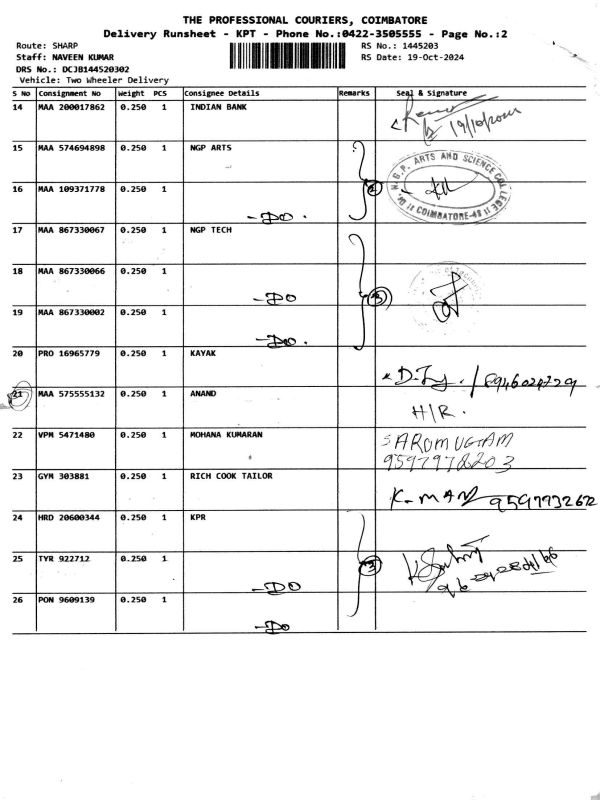 THE PROFESSIONAL COURIERS, COIMBATORE
Delivery Runsheet - KPT - Phone No.:0422-3505555 - Page No.:2
Route: SHARP RS No.: 1445203
Staff: NAVEEN KUMAR RS Date: 19-Oct-2024
DRS No.: DCJB144520302
Vehicle: Two Wheeler Delivery
S No Consignment No Weight PCS Consignee Details Remarks Seal & Signature
14 MAA 200017862 0.250 1 INDIAN BANK
15 MAA 574694898 0.250 1 NGP ARTS
DR. N.G.P. ARTS AND SCIENCE COLLEGE
COIMBATORE-48
16 MAA 109371778 0.250 1
-DO.
17 MAA 867330067 0.250 1 NGP TECH
18 MAA 867330066 0.250 1
-DO
3
19 MAA 867330002 0.250 1
-DO.
20 PRO 16965779 0.250 1 KAYAK
21 MAA 575555132 0.250 1 ANAND
H/R.
22 VPM 5471480 0.250 1 MOHANA KUMARAN
SAROMUGAM
9597972203
23 GYM 303881 0.250 1 RICH COOK TAILOR
9597732672
24 HRD 20600344 0.250 1 KPR
25 TYR 922712 0.250 1
3
-DO
26 PON 9609139 0.250 1
-DO